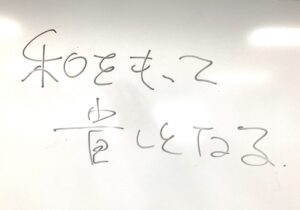 和をもって
貴しとなる